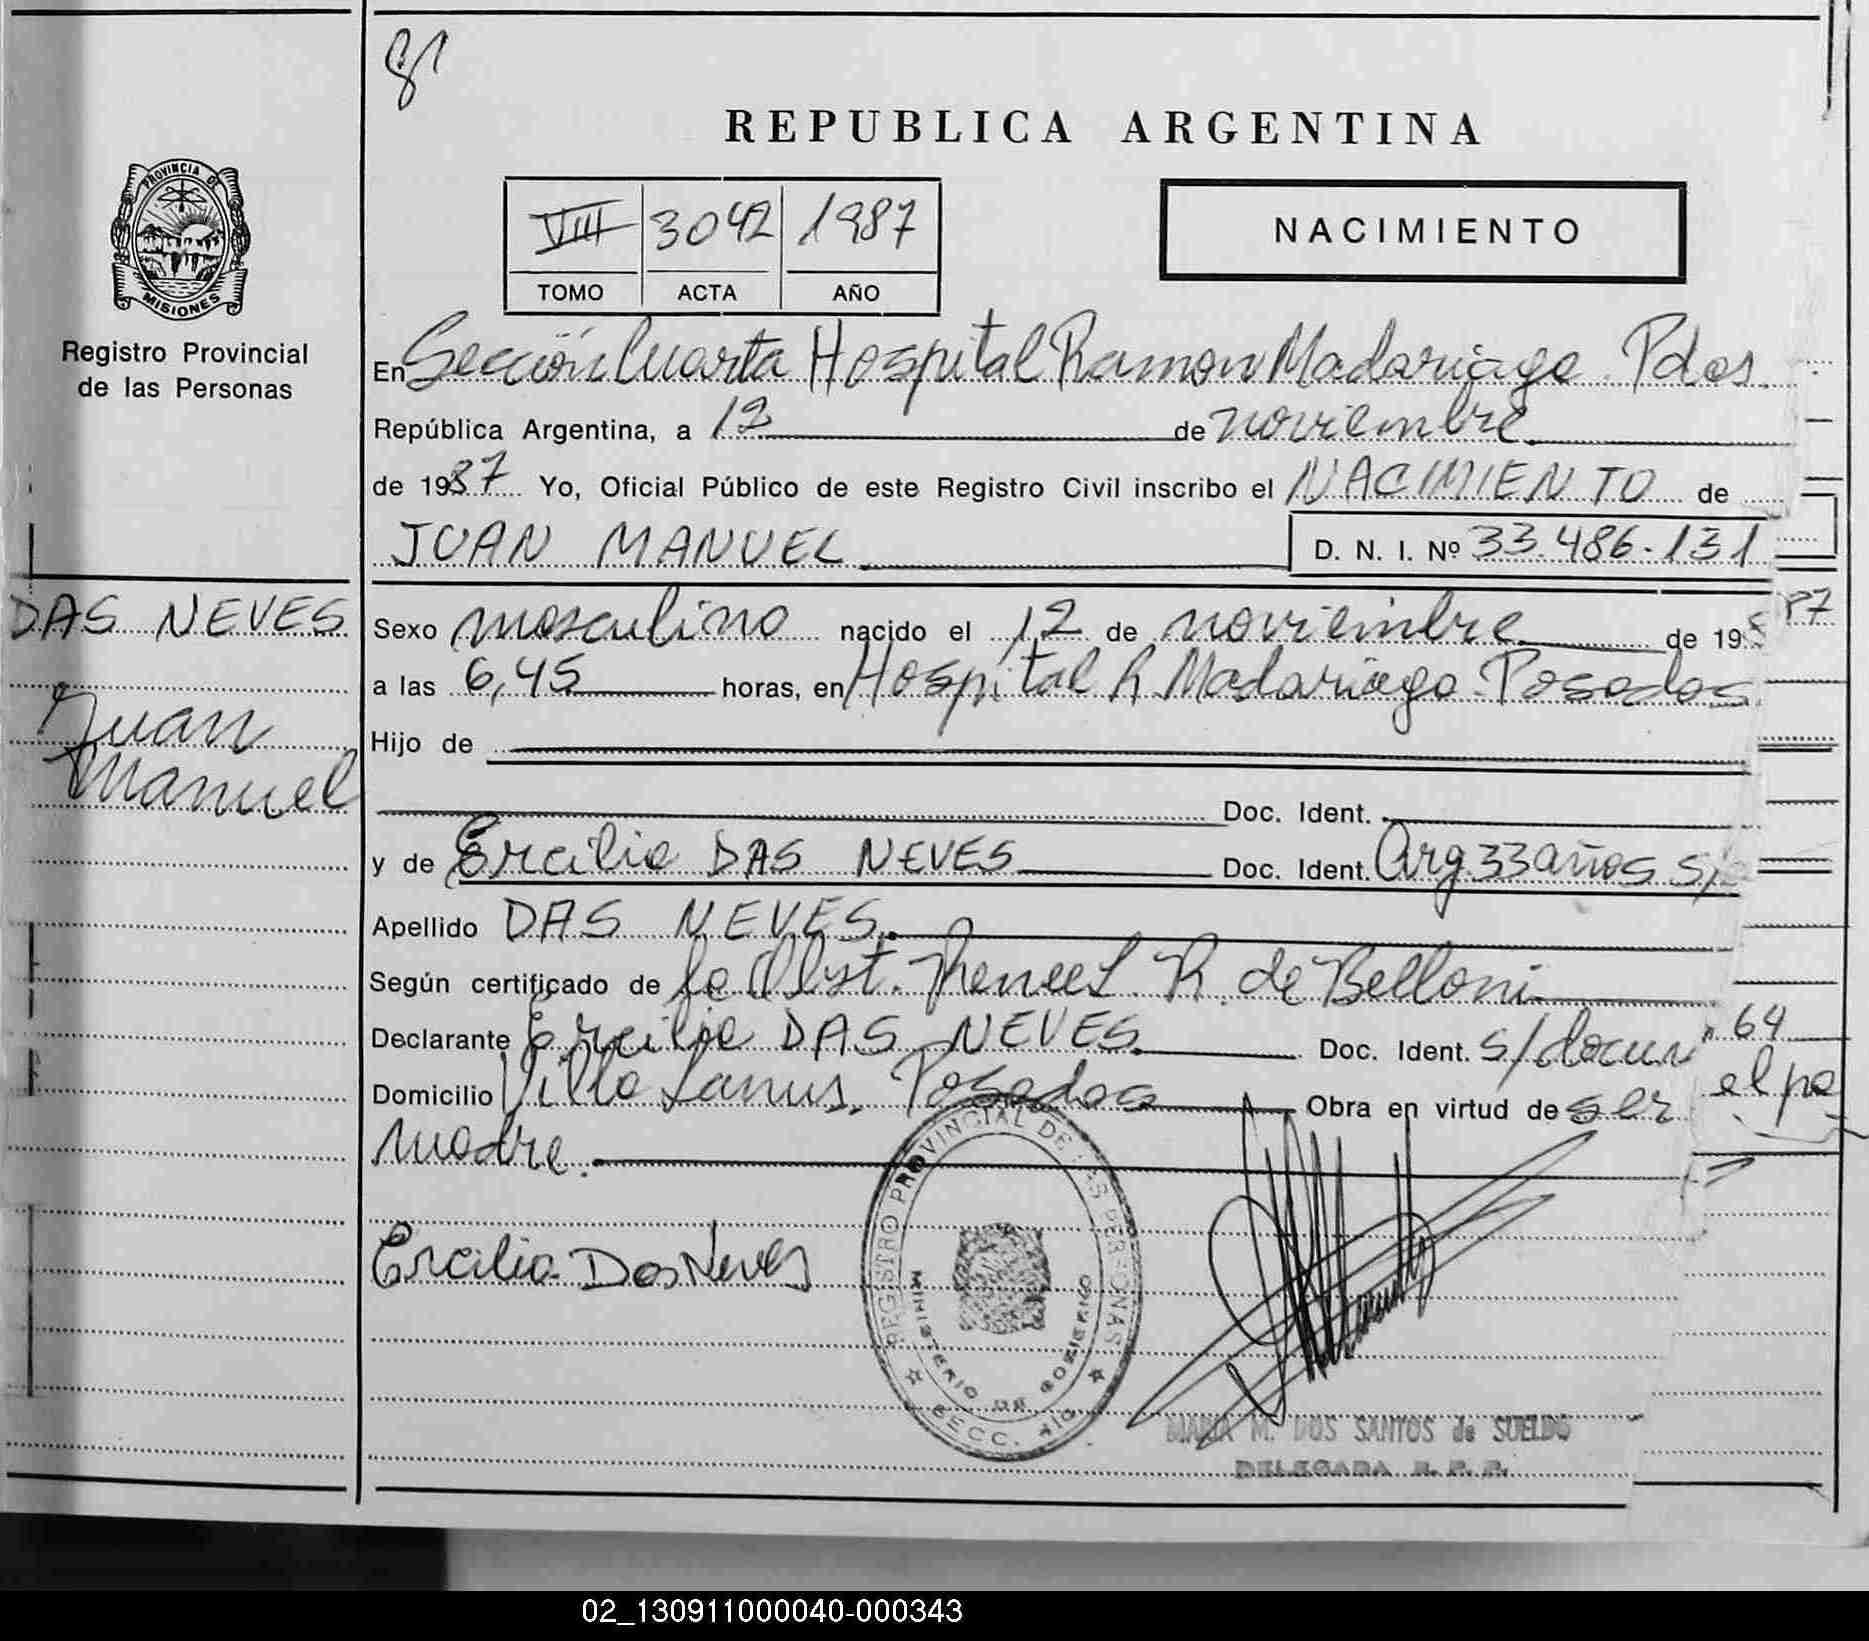 81
REPUBLICA ARGENTINA
PROVINCIA DE
MISIONES
Registro Provincial
de las Personas
VIII 3042 1987
TOMO ACTA AÑO
NACIMIENTO
En Sección Cuarta Hospital Ramon Madariaga Pdas.
República Argentina, a 12 de noviembre
de 1987 Yo, Oficial Público de este Registro Civil inscribo el NACIMIENTO de
JUAN MANUEL
D. N. I. Nº 33.486.131
DAS NEVES
Juan
Manuel
Sexo masculino nacido el 12 de noviembre de 19 87
a las 6,45 horas, en Hospital R. Madariaga. Posadas
Hijo de
Doc. Ident.
y de Ercilia DAS NEVES Doc. Ident. Arg 33 años s/
Apellido DAS NEVES.
Según certificado de la Obst. Renee L. R. de Belloni
Declarante Ercilia DAS NEVES Doc. Ident. s/docum
64
Domicilio Villa Lanus. Posadas Obra en virtud de ser
el pa
madre.
Ercilia Das Neves
REGISTRO PROVINCIAL DE LAS PERSONAS
MINISTERIO DE GOBIERNO
SECC. 4ta
MARIA M. DOS SANTOS de SUELDO
DELEGADA R. P. P.
02_130911000040-000343